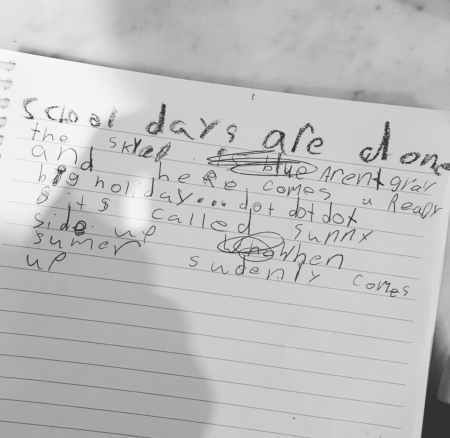 School days are done
the skyes blue Arent gray
and here comes a Realy
big holiday... dot dot dot
its called sunny
side up when
sumer sudenly comes
up